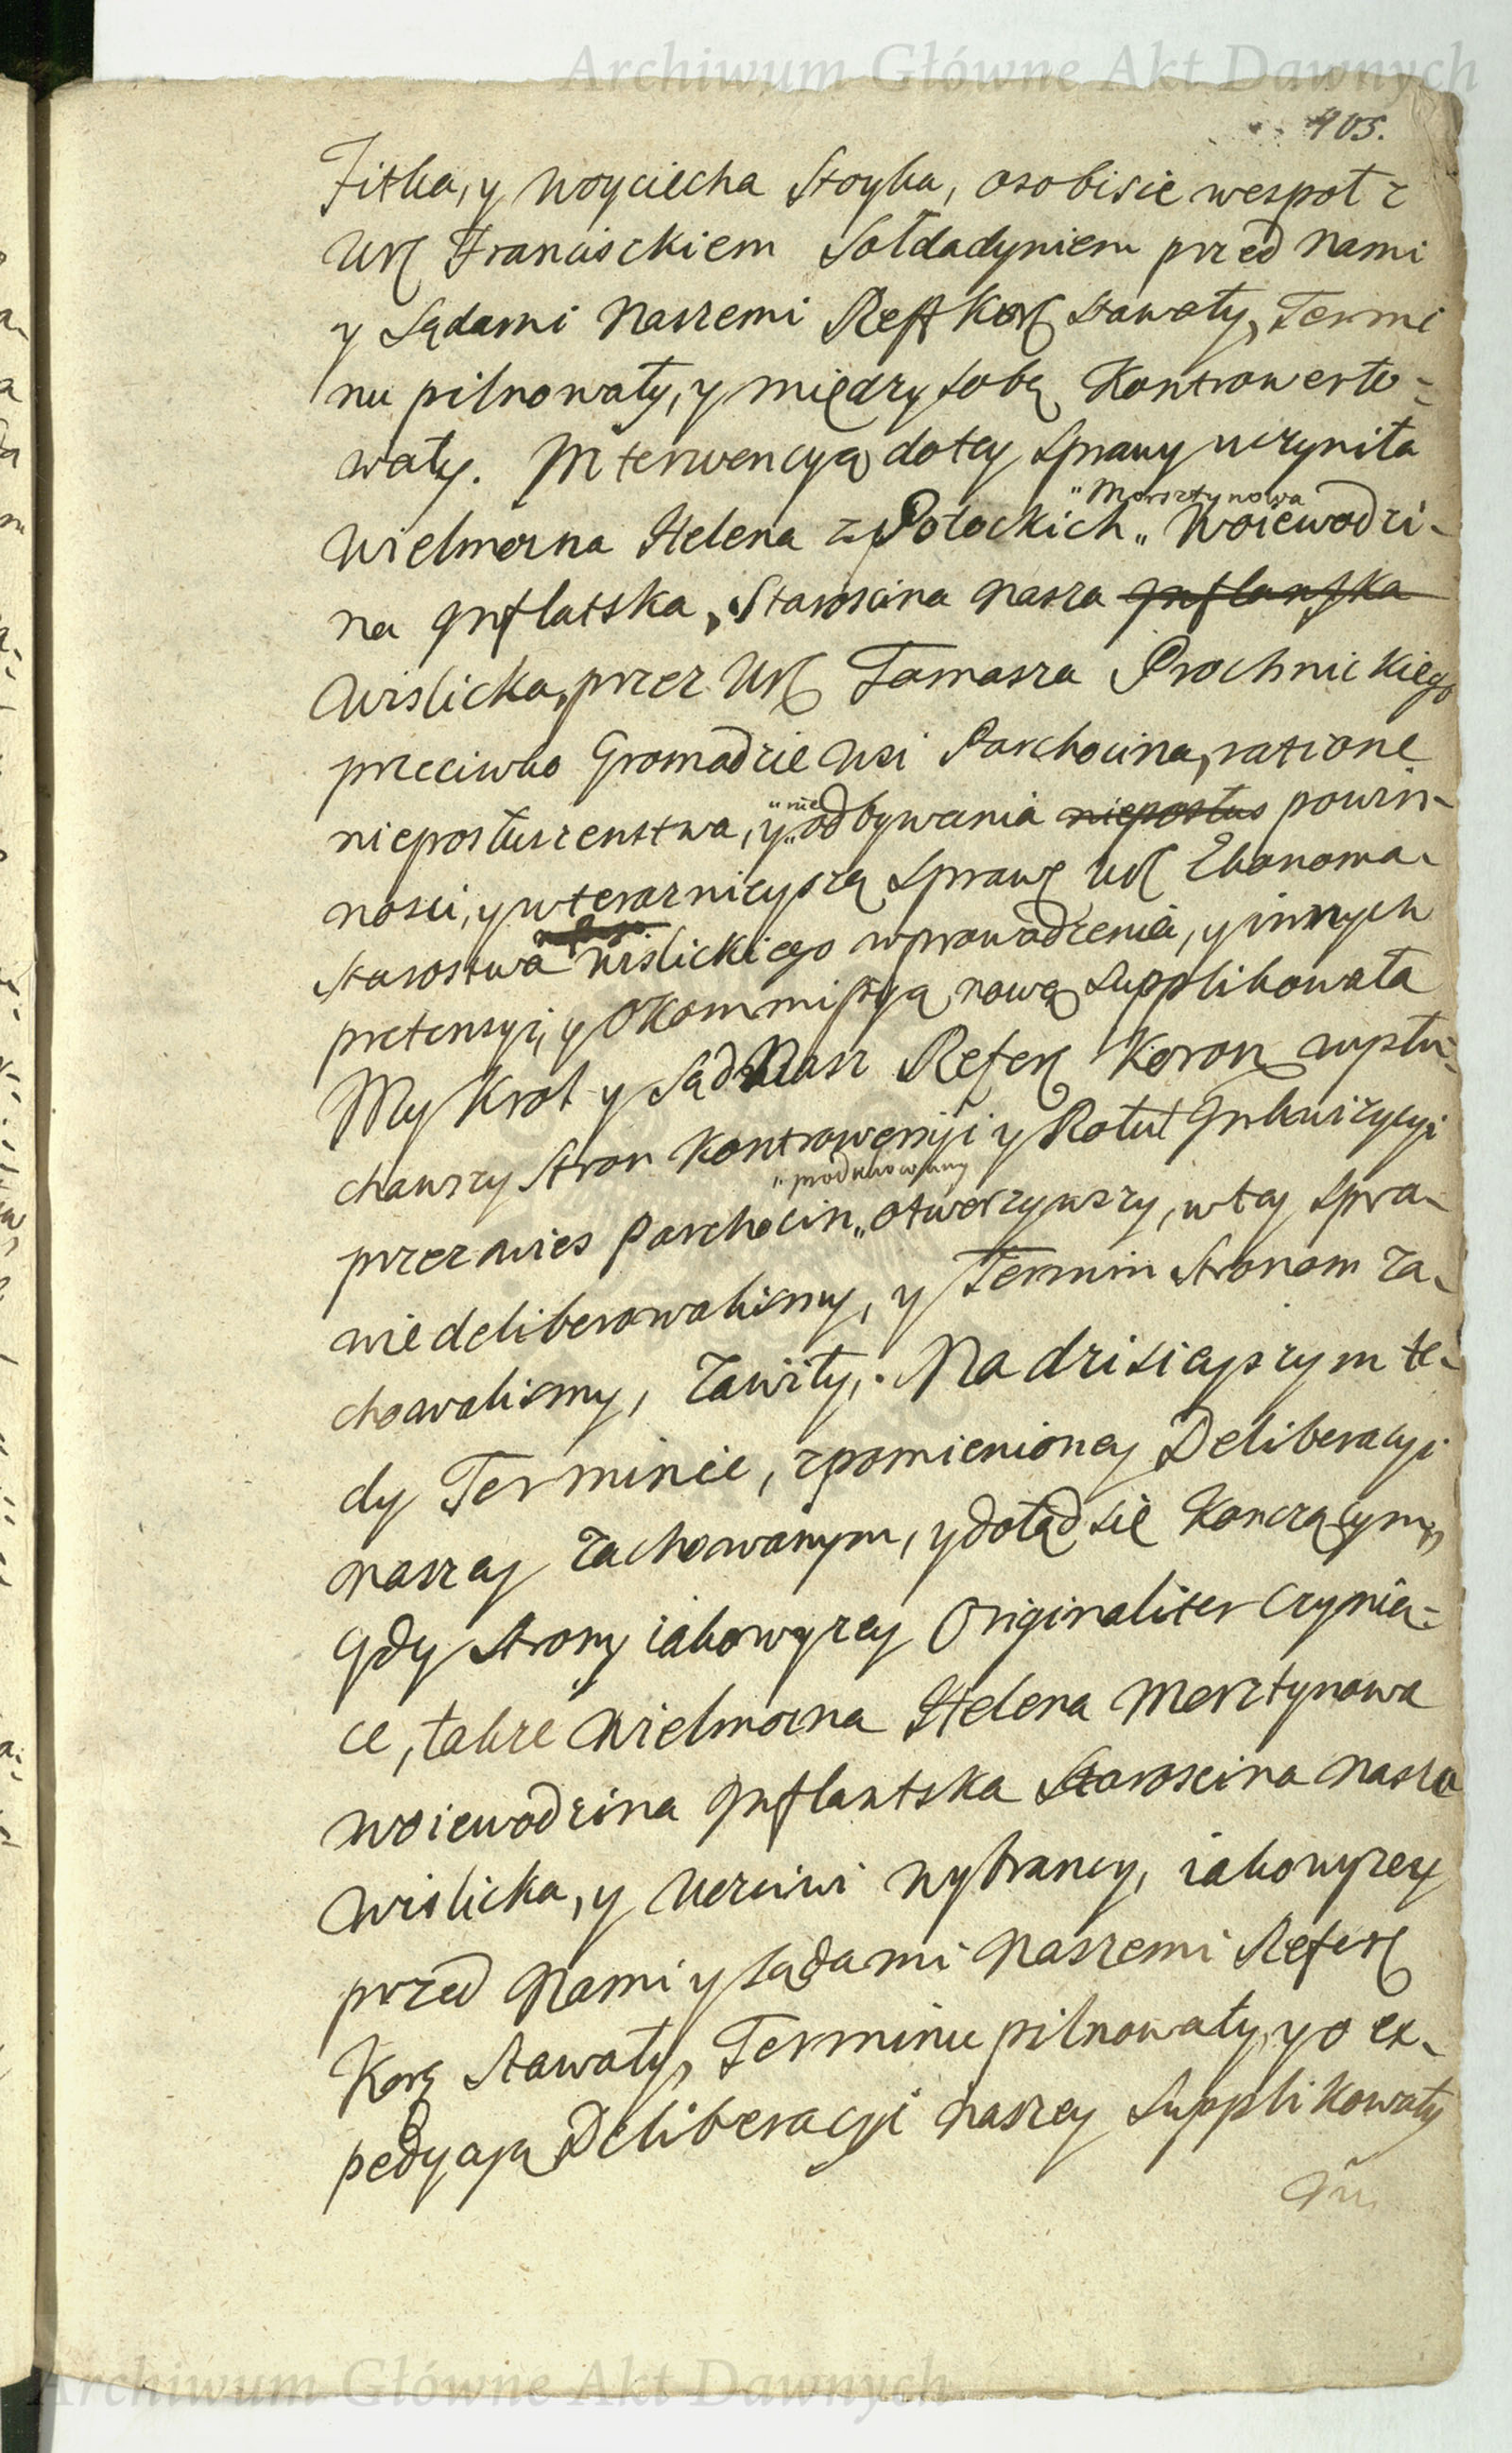 Archiwum Główne Akt Dawnych
905.
Fitka, y Woyciecha Stoyka, osobiscie wespoł z
Ur Franciszkiem Sołdadyniem przed nami
y Sądami Naszemi Reff Kor stawały, Termi
nu pilnowały, y między sobą Kontrowerto-
wały. Interwencyą do tey sprawy uczyniła
"Morsztynowa
Wielmozna Helena z Potockich „ Woiewodzi-
na Inflatska, Staroscina nasza Inflantska
Wislicka, przez Ur Tomasza Prochnickiego
przeciwko Gromadzie Wsi Parchocina, ratione
"nie
nieposłuszenstwa, y „ odbywania nieposłus powin-
nosci, y w teraznieyszą sprawę Ur Ekonoma
Starostwa Wislickiego wprowadzenia, y innych
pretensyi, y o Kommissyą nową supplikowała
My Krol y Sąd Nasz Refer Koron wysłu-
chawszy stron Kontrowersyi y Rotuł Inkwizycyi
"produkowany
przez wies Parchocin „ otworzywszy, w tey spra-
wie deliberowalismy, y Termin stronom za-
chowalismy, zawity. Na dzisieyszym te-
dy Terminie, z pomienioney Deliberacyi
naszey zachowanym, y dotąd się Konczącym,
Gdy strony iako wyzey Originaliter czynią-
ce, takze Wielmozna Helena Morsztynowa
Woiewodzina Inflantska Staroscina nasza
Wislicka, y Uczciwi Wybrancy, iako wyzey
przed Nami y Sądami Naszemi Refer
Kor stawały, Terminu pilnowały, y o ex-
pedycyą Deliberacyi naszey supplikowały
Archiwum Główne Akt Dawnych